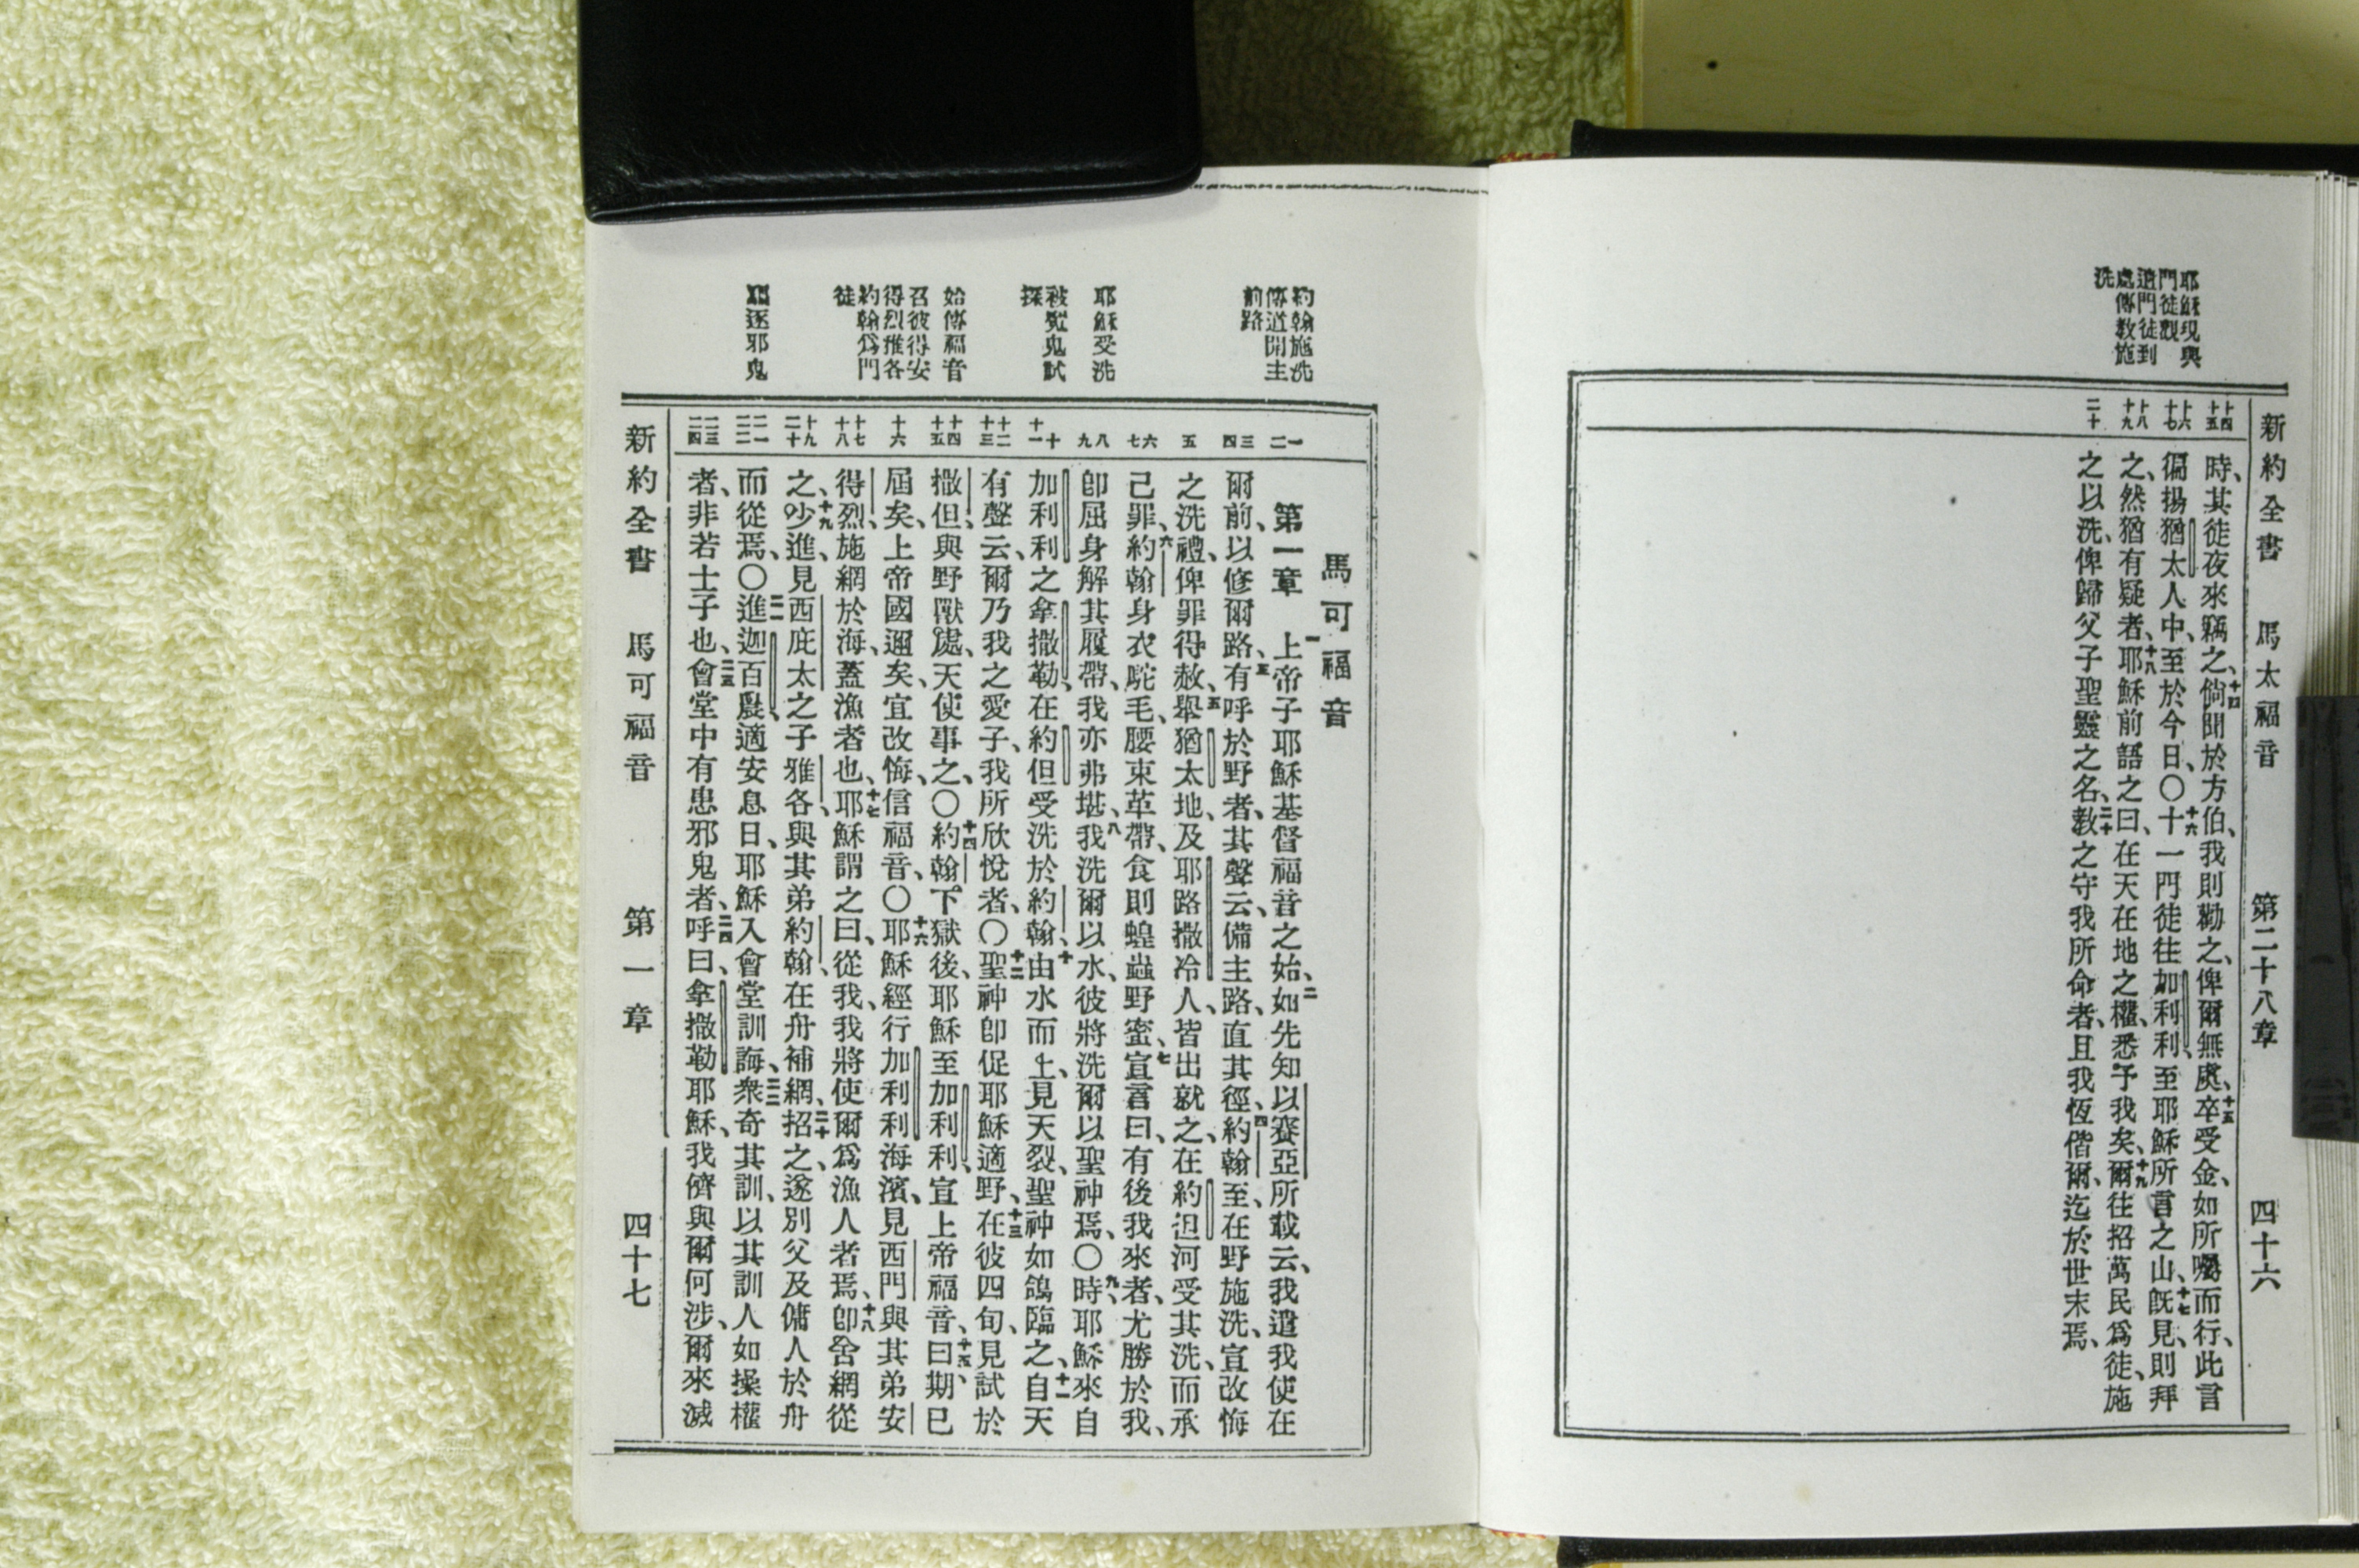 新約全書 馬太福音 第二十八章 四十六
耶穌現與
門徒觀
遺門徒到
處傳教施
洗
十四
十五
十六
十七
十八
十九
二十
時、其徒夜來竊之、十四倘聞於方伯、我則勸之、俾爾無慮、十五卒受金、如所囑而行、此言
徧揚猶太人中、至於今日、〇十六十一門徒往加利利、至耶穌所言之山、十七既見、則拜
之、然猶有疑者、十八耶穌前語之曰、在天在地之權、悉予我矣、十九爾往招萬民爲徒、施
之以洗、俾歸父子聖靈之名、二十教之守我所命者、且我恆偕爾、迄於世末焉、
約翰施洗
傳道開主
前路
耶穌受洗
被魔鬼試
探
始傳福音
召彼得安
得烈推各
約翰爲門
徒
逐邪鬼
一
二
三
四
五
六
七
八
九
十
十一
十二
十三
十四
十五
十六
十七
十八
十九
二十
二一
二二
二三
二四
馬可福音
第一章 一上帝子耶穌基督福音之始、二如先知以賽亞所載云、我遣我使在
爾前、以修爾路、三有呼於野者、其聲云、備主路、直其徑、四約翰至、在野施洗、宣改悔
之洗禮、俾罪得赦、五舉猶太地、及耶路撒冷人、皆出就之、在約但河受其洗、而承
己罪、六約翰身衣駝毛、腰束革帶、食則蝗蟲野蜜、七宣言曰、有後我來者、尤勝於我、
卽屈身解其履帶、我亦弗堪、八我洗爾以水、彼將洗爾以聖神焉、〇九時、耶穌來自
加利利之拿撒勒、在約但受洗於約翰、十由水而上、見天裂、聖神如鴿臨之、十一自天
有聲云、爾乃我之愛子、我所欣悅者、〇十二聖神卽促耶穌適野、十三在彼四旬、見試於
撒但、與野獸處、天使事之、〇十四約翰下獄後、耶穌至加利利、宣上帝福音、十五曰、期已
屆矣、上帝國邇矣、宜改悔、信福音、〇十六耶穌經行加利利海濱、見西門與其弟安
得烈、施網於海、蓋漁者也、十七耶穌謂之曰、從我、我將使爾爲漁人者焉、十八卽舍網從
之、十九少進、見西庇太之子雅各、與其弟約翰、在舟補網、二十招之、遂別父及傭人於舟
而從焉、〇二一進迦百農、適安息日、耶穌入會堂訓誨、二二衆奇其訓、以其訓人如操權
者、非若士子也、二三會堂中有患邪鬼者、二四呼曰、拿撒勒耶穌、我儕與爾何涉、爾來滅
新約全書 馬可福音 第一章 四十七